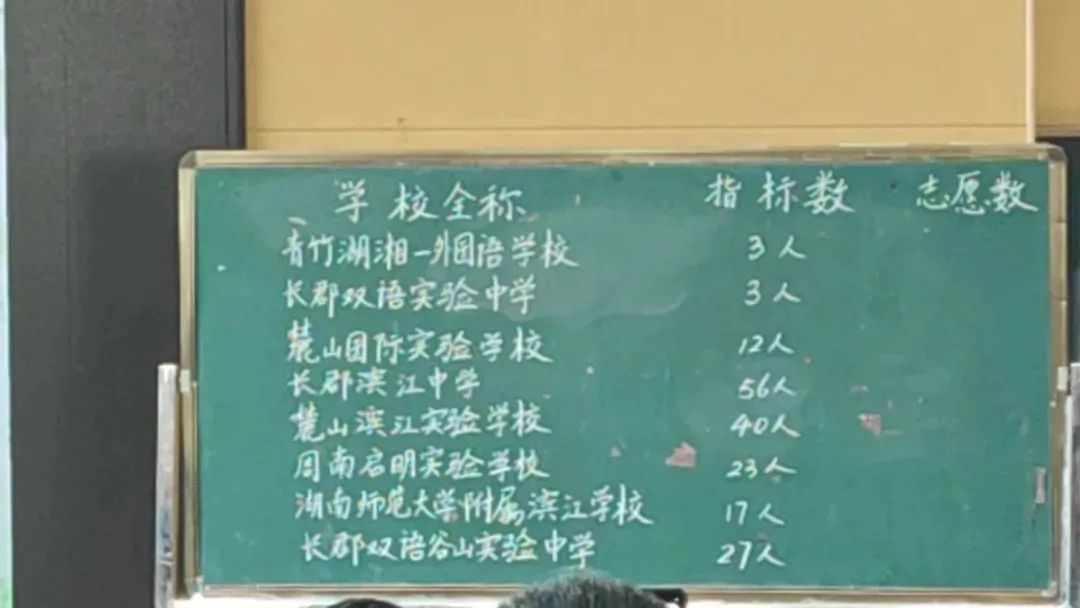 学校全称 指标数 志愿数
青竹湖湘一外国语学校 3人
长郡双语实验中学 3人
麓山国际实验学校 12人
长郡滨江中学 56人
麓山滨江实验学校 40人
周南启明实验学校 23人
湖南师范大学附属滨江学校 17人
长郡双语谷山实验中学 27人